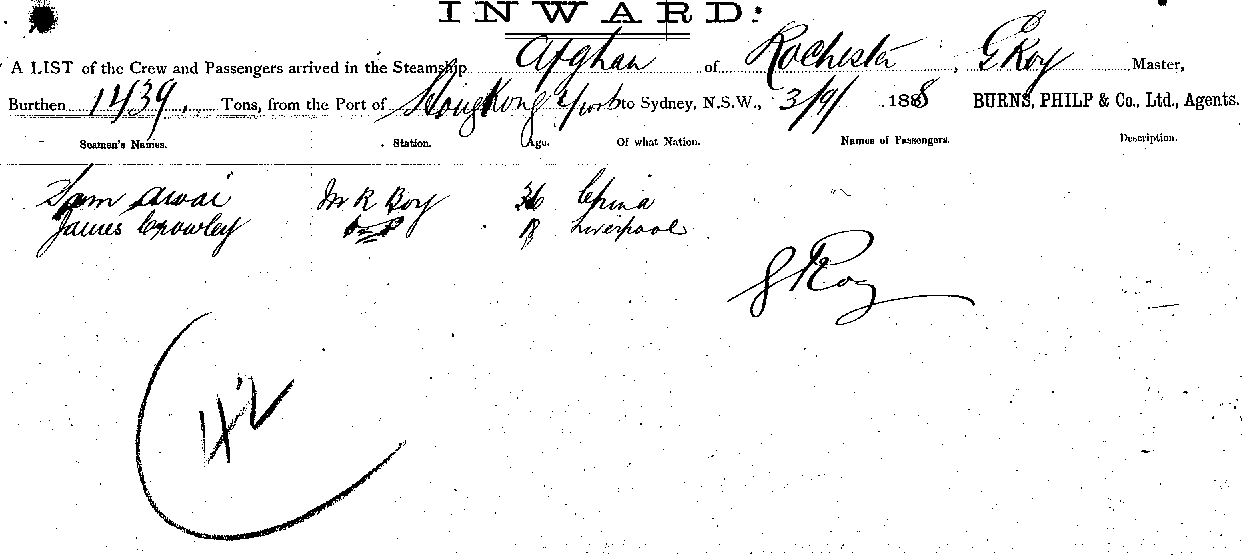 INWARD.
A LIST of the Crew and Passengers arrived in the Steamship Afghan of Rochester, G Roy Master,
Burthen 1439 Tons, from the Port of Hong Kong to Sydney, N.S.W., 3/9/ 1888 BURNS, PHILP & Co., Ltd., Agents.
Seamen's Names. Station. Age. Of what Nation. Names of Passengers. Description.
Sam Awai M R Boy 36 China
James Crowley 18 Liverpool
G Roy
42